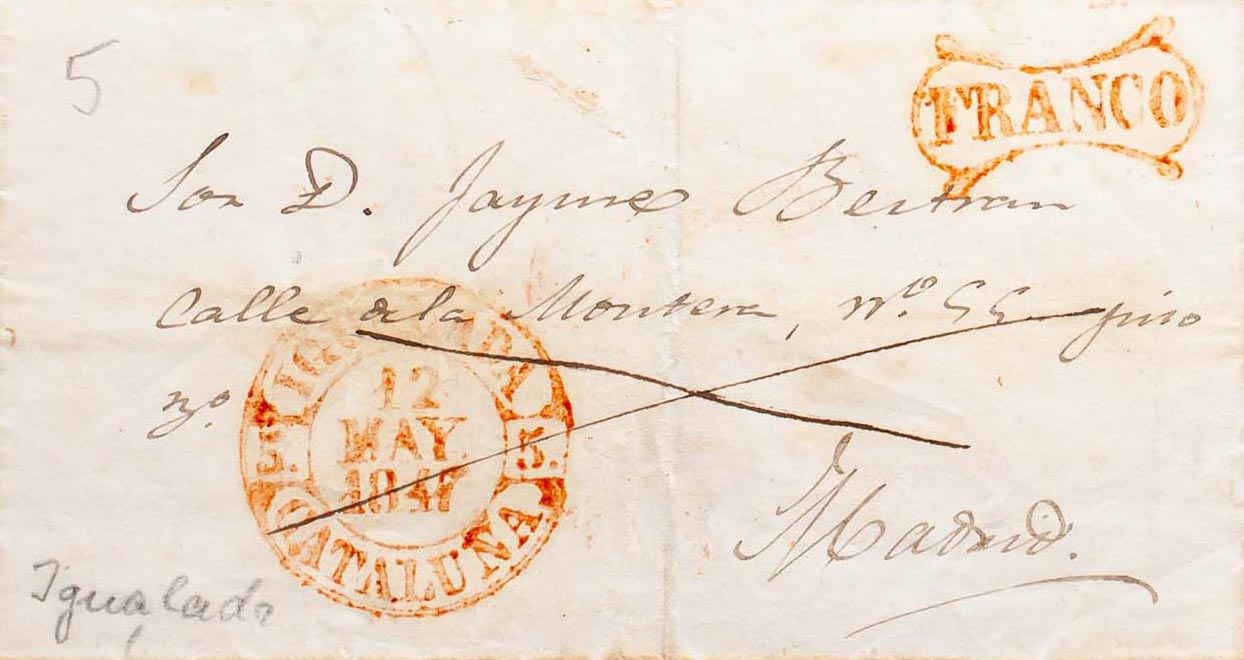 5
FRANCO
Sor D. Jayme Bertran
Calle de la Montera, nº. 55 piso
2º.
Madrid.
IGUALADA
12
MAY.
1847
5. 5.
CATALUNA
Igualada